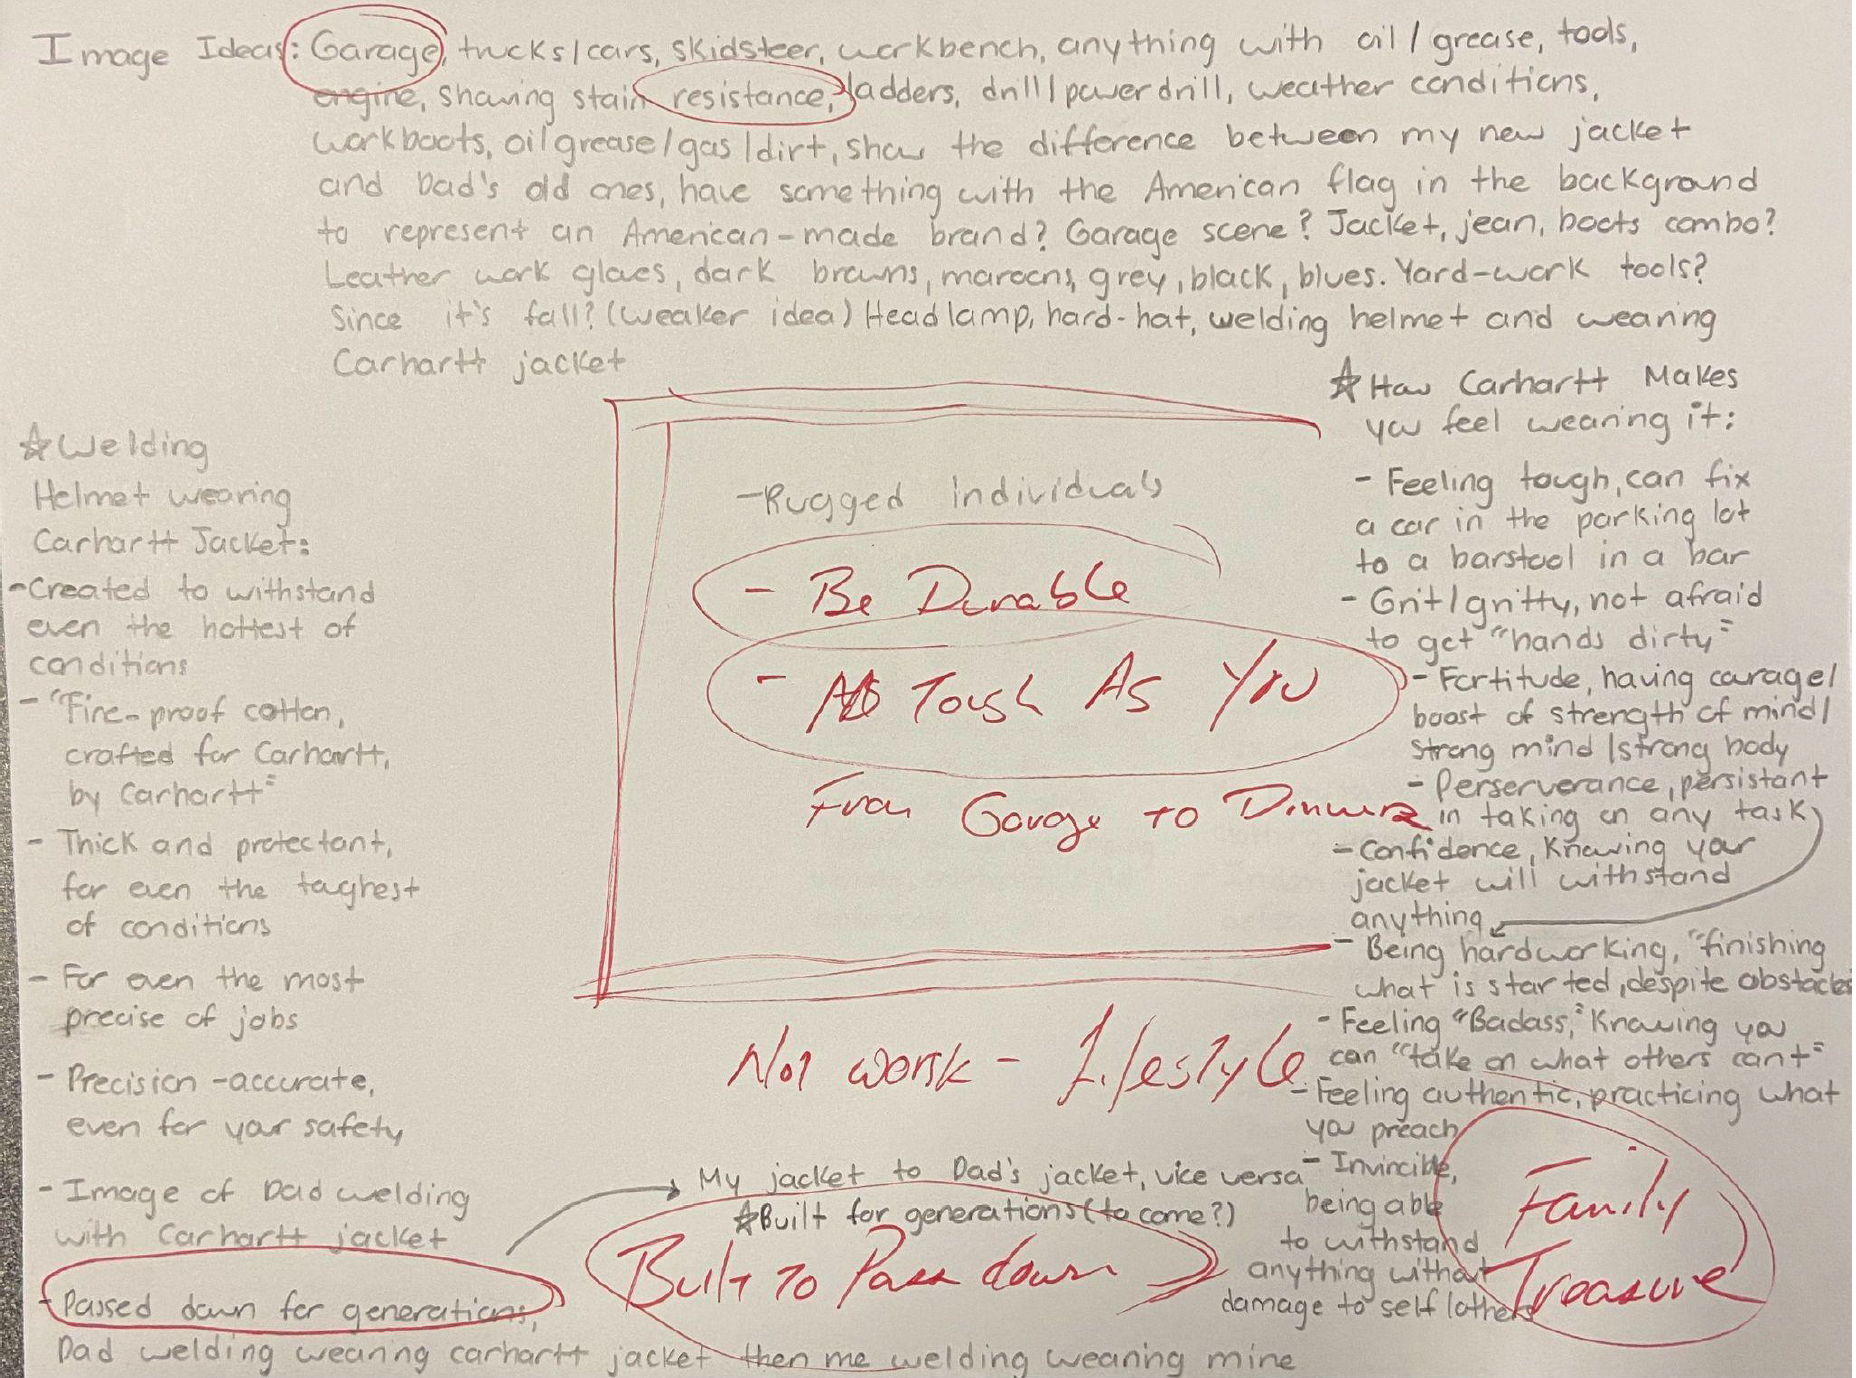 Image Ideas: Garage, trucks/cars, skidsteer, workbench, anything with oil/grease, tools,
engine, showing stain resistance, ladders, drill/power drill, weather conditions,
workboots, oil grease/gas/dirt, show the difference between my new jacket
and Dad's old ones, have something with the American flag in the background
to represent an American-made brand? Garage scene? Jacket, jean, boots combo?
Leather work gloves, dark browns, maroons, grey, black, blues. Yard-work tools?
Since it's fall? (weaker idea) Headlamp, hard-hat, welding helmet and wearing
Carhartt jacket
☆ Welding
Helmet wearing
Carhartt Jacket:
- Created to withstand
even the hottest of
conditions
- "Fire-proof cotton,
crafted for Carhartt,
by Carhartt"
- Thick and protectant,
for even the toughest
of conditions
- For even the most
precise of jobs
- Precision-accurate,
even for your safety
- Image of Dad welding
with Carhartt jacket
- Passed down for generations,
Dad welding wearing carhartt jacket then me welding wearing mine
- Rugged individuals
- Be Durable
- As Tough As You
From Garage to Dinner
Not work - Lifestyle
My jacket to Dad's jacket, vice versa
☆ Built for generations (to come?)
Built to Pass down
☆ How Carhartt Makes
you feel wearing it:
- Feeling tough, can fix
a car in the parking lot
to a barstool in a bar
- Grit/gritty, not afraid
to get "hands dirty"
- Fortitude, having courage/
boost of strength of mind/
strong mind/strong body
- Perserverance, persistant
in taking on any task
- Confidence, Knowing your
jacket will withstand
anything
- Being hardworking, "finishing
what is started, despite obstacles
- Feeling "Badass," Knowing you
can "take on what others cant"
- Feeling authentic, practicing what
you preach
- Invincible,
being able
to withstand
anything without
damage to self/others
Family
Treasure